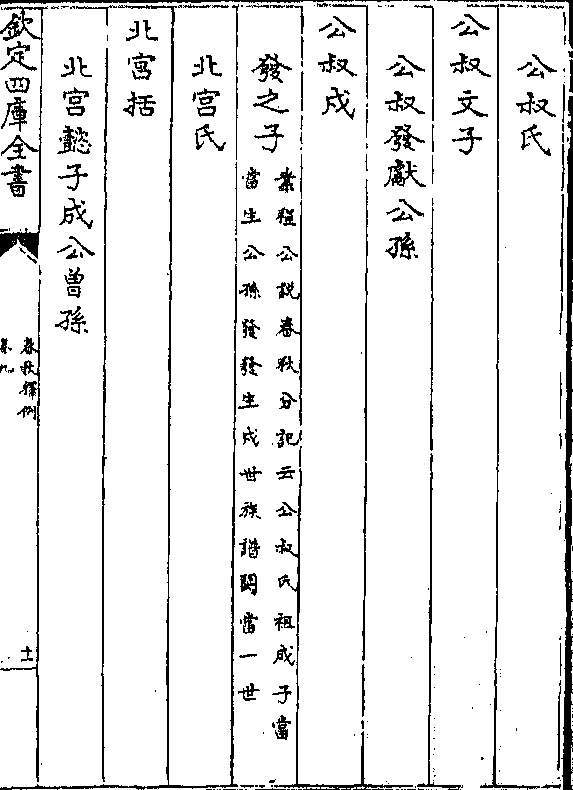 公叔氏
公叔文子
公叔發獻公孫
公叔戍
發之子
案程公説春秋分記云公叔氏祖成子當
當生公孫發發生戍世族譜闕當一世
北宮氏
北宮括
北宮懿子成公曾孫
欽定四庫全書
春秋釋例
卷九
十一